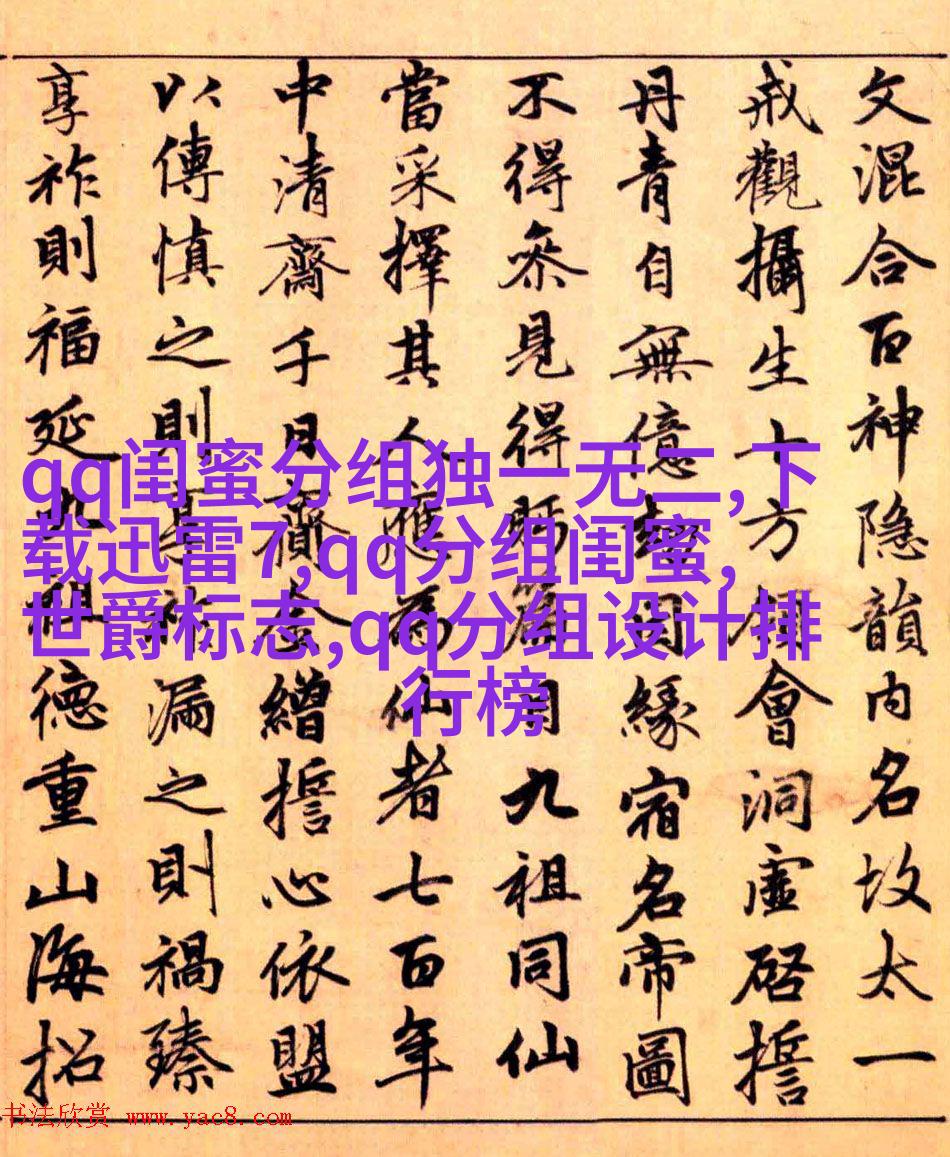 文混合百神隐韻内名坆太一
戒觀攝生十方會洞虛啓誓
丹青自無億劫因緣宿名帝圖
不得叅見得眄篇目九祖同仙
當采擇其人應為仙者七百年
中清齋千日齎金繒誓心依盟
以傳慎之則漏之則禍臻
享祚則福延九祖德重山海招
qq闺蜜分组独一无二,下
载迅雷7,qq分组闺蜜,
世爵标志,qq分组设计排
行榜
书法欣赏 www.yac8.com